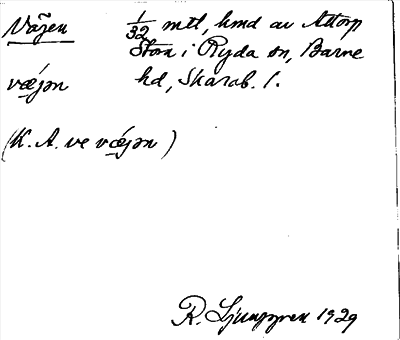 Vägen 1/32 mtl, hmd av Attorp
Stom i Ryda sn, Barne
vǽ̨jən hd, Skarab. l.
(K. A. ve vǽ̨jən)
R. Ljunggren 1929